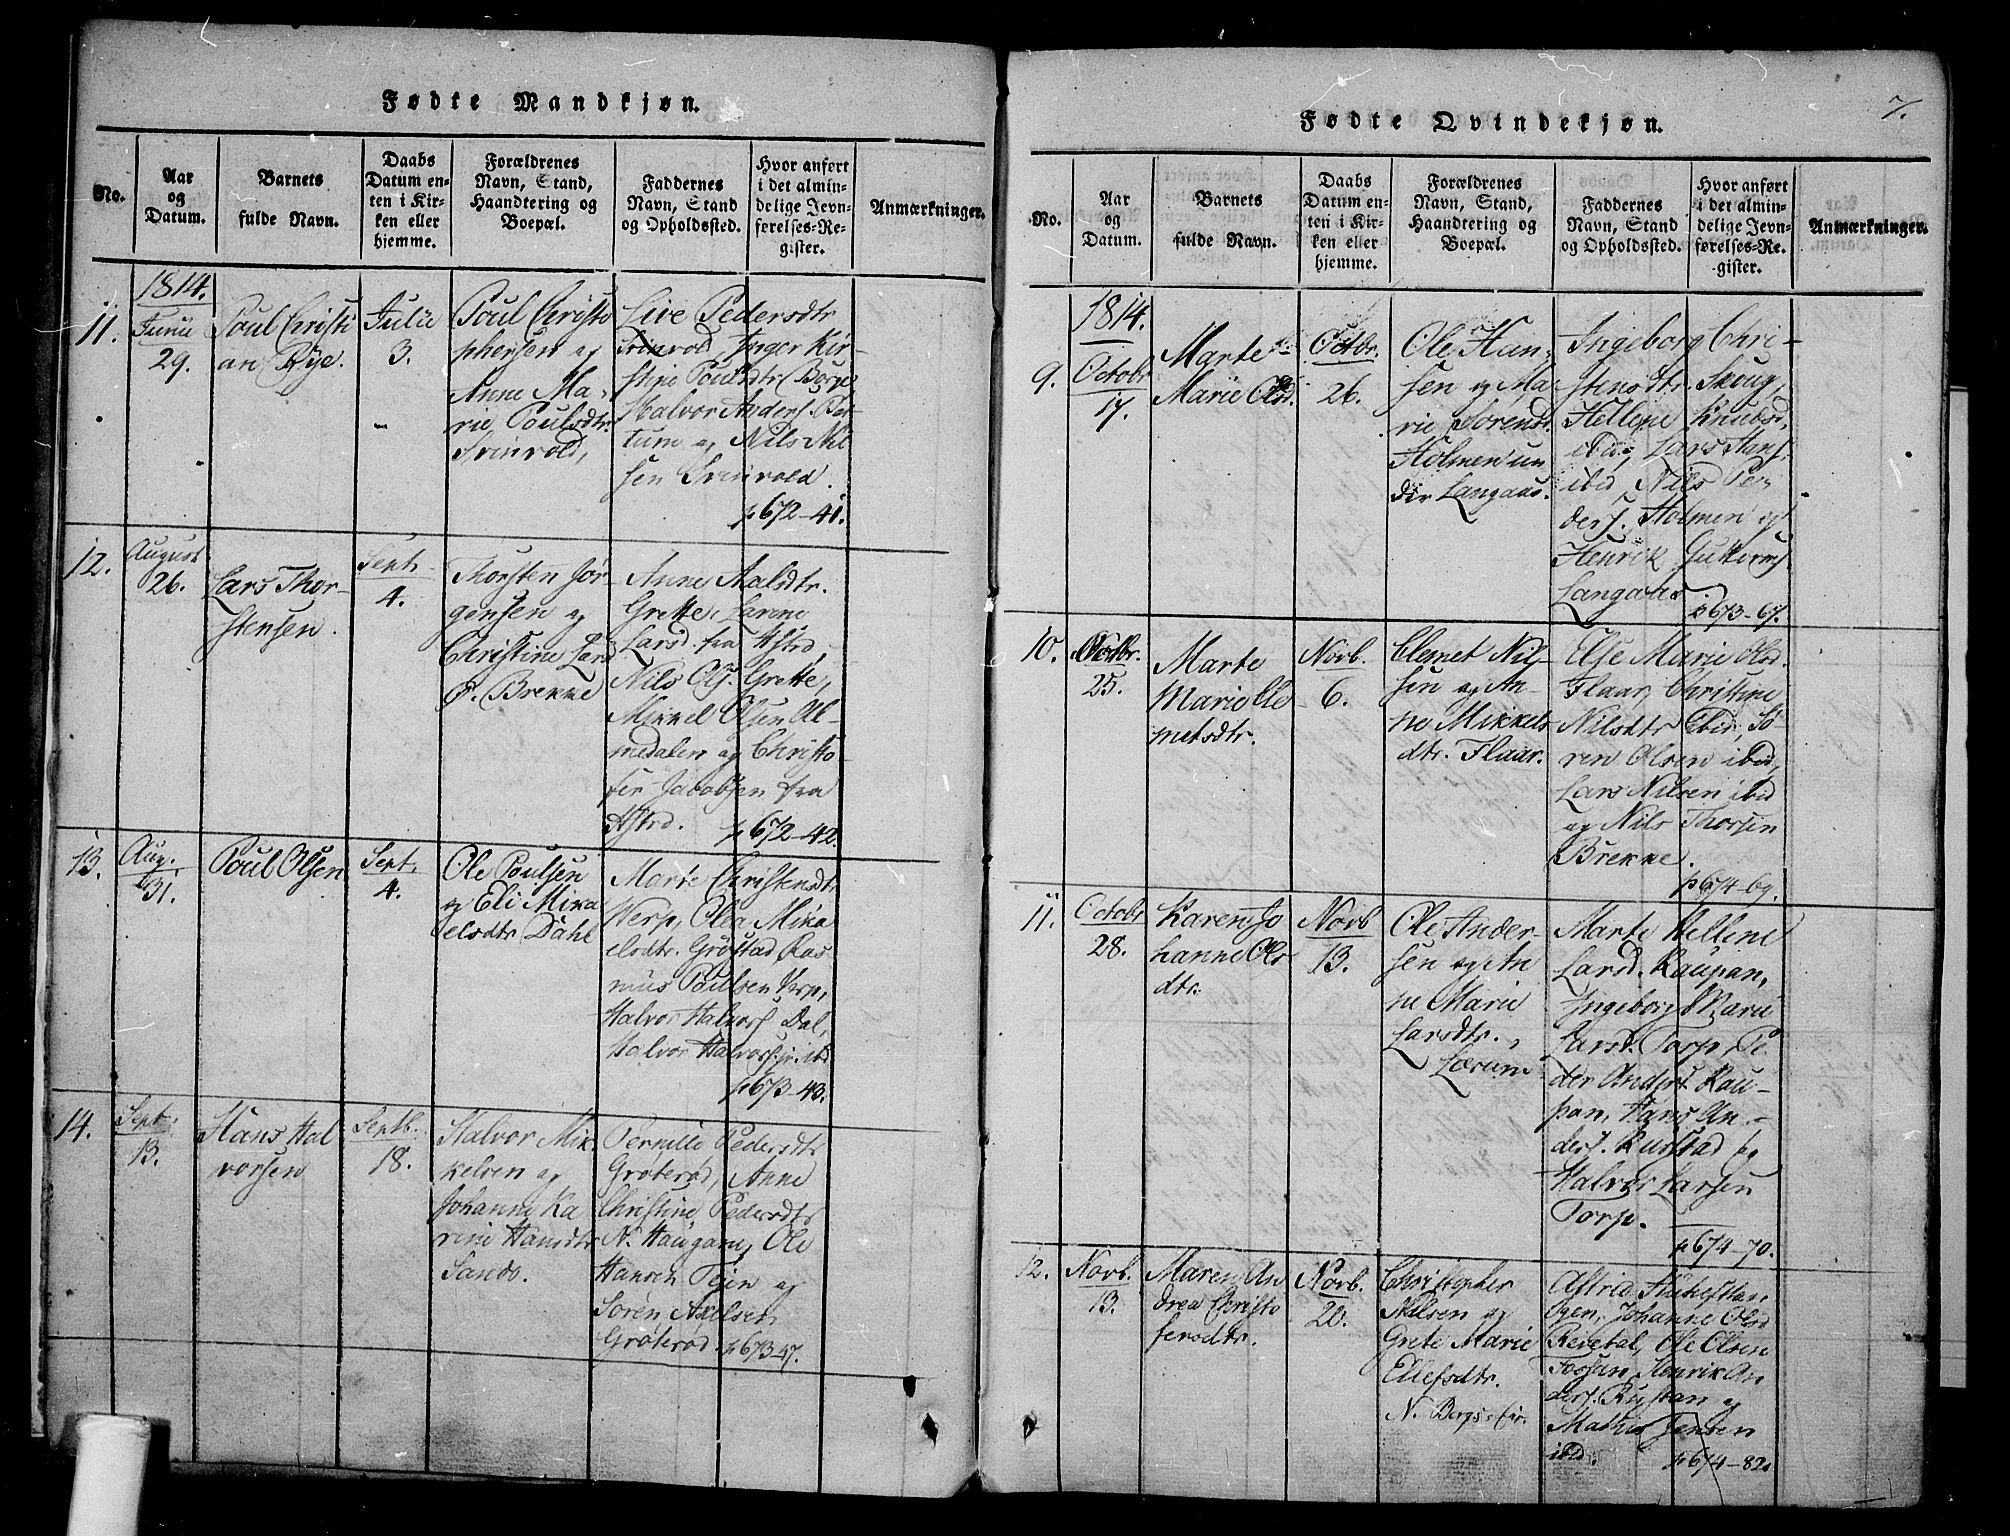 Fødte Mandkjøn.
No.
Aar
og
Datum.
Barnets
fulde Navn.
Daabs
Datum en-
ten i Kir-
ken eller
hjemme.
Forældrenes
Navn, Stand,
Haandtering og
Boepæl.
Faddernes
Navn, Stand
og Opholdssted.
Hvor anført
i det almin-
delige Jevn-
førelses-Re-
gister.
Anmærkninger.
11.
1814.
Junii
29.
Poul Christi
an Rye.
Julii
3.
Poul Christo
phersen og
Anne Ma-
rie Poulsdtr.
Svinvold,
Live Pedersdtr
Inger Kir-
stine Poulsdtr. Borge
Halvor Anders.
tum og Nils Nil
sen Svinvold.
p 672-41.
12.
August
26.
Lars Thor-
stensen.
Sept.
4.
Thorsten Jør-
gensen og
Christine Lars
D. Brekke
Anne Aalsdtr.
Grette, Larine
Larsd. fra
Nils Ols. Grette,
Mikkel Olsen Al-
medalen og Christo-
fer Jacobsen fra
p 672-42.
13.
Aug.
31.
Poul Olsen
Sept.
4.
Ole Poulsen
og Eli Mika
elsdtr Dahl
Marte Christensdtr
Werp, Olea Mika
elsdtr. Grøstad Ras
mus Poulsen Verp,
Halvor Halvors Dal,
Halvor Halvors. jr. ibd
p 673-43.
14.
Sept.
13.
Hans Hal
vorsen
Septb.
18.
Halvor Mik
kelsen og
Johanne Ka
rine Hansdtr
Sando.
Pernille Pedersdtr
Grøterød, Anne
Christine Pedersdtr
N. Haugane, Ole
Hansen Tejen og
Søren Axelsen
Grøterød. p 673-47.
7.
Fødte Qvindekjøn.
No.
Aar
og
Datum.
Barnets
fulde Navn.
Daabs
Datum en-
ten i Kir-
ken eller
hjemme.
Forældrenes
Navn, Stand,
Haandtering og
Boepæl.
Faddernes
Navn, Stand
og Opholdssted.
Hvor anført
i det almin-
delige Jevn-
førelses-Re-
gister.
Anmærkninger.
9.
1814.
Octobr
17.
Marte
Marie Olsd.
Octbr.
26.
Ole Han-
sen og Ma-
rie Sørensd.
Holmen un
der Langaas.
Ingeborg Chri-
stensdtr. Skoug,
Hellene Knudsd.
ibid, Lars Hans.
ibid Nils Pe-
ders. Holmen og
Henrik Gulterms
Langaas
p 673-67.
10.
25.
Marte
Marie Cle
metsdtr.
Novb.
6.
Clemet Nil-
sen og An-
ne Mikkels
dtr. Flaar.
Else Marie Olsd
Flaar, Christine
Nilsdtr ibid, Sø-
ren Olsen ibid,
Lars Nilsen ibid
og Nils Thorsen
Brekke.
p 674-69.
11.
Octobr
28.
Karen Jo
hanne Ols
dtr.
Novb
13.
Ole Ander
sen og An
ne Marie
Larsdtr.
Lærum
Marte Hellene
Larsd. Kaupan,
Ingeborg Marie
Larsd. Torp, Pe
der Anders. Kau-
pan, Hans An-
ders. Rustad og
Halvor Larsen
Torp.
p 674-70.
12.
Novb.
13.
Maren An
drea Christo
fersdtr.
Novb.
20.
Christopher
Nilsen og
Grete Marie
Ellefsdtr.
N. Bergs.
Astrid
Ogen, Johanne Olsd
Revetal, Ole Olsen
Fossan, Henrik An
ders. Rustan og
Mathis Jensen
ibid.
p 674-82.